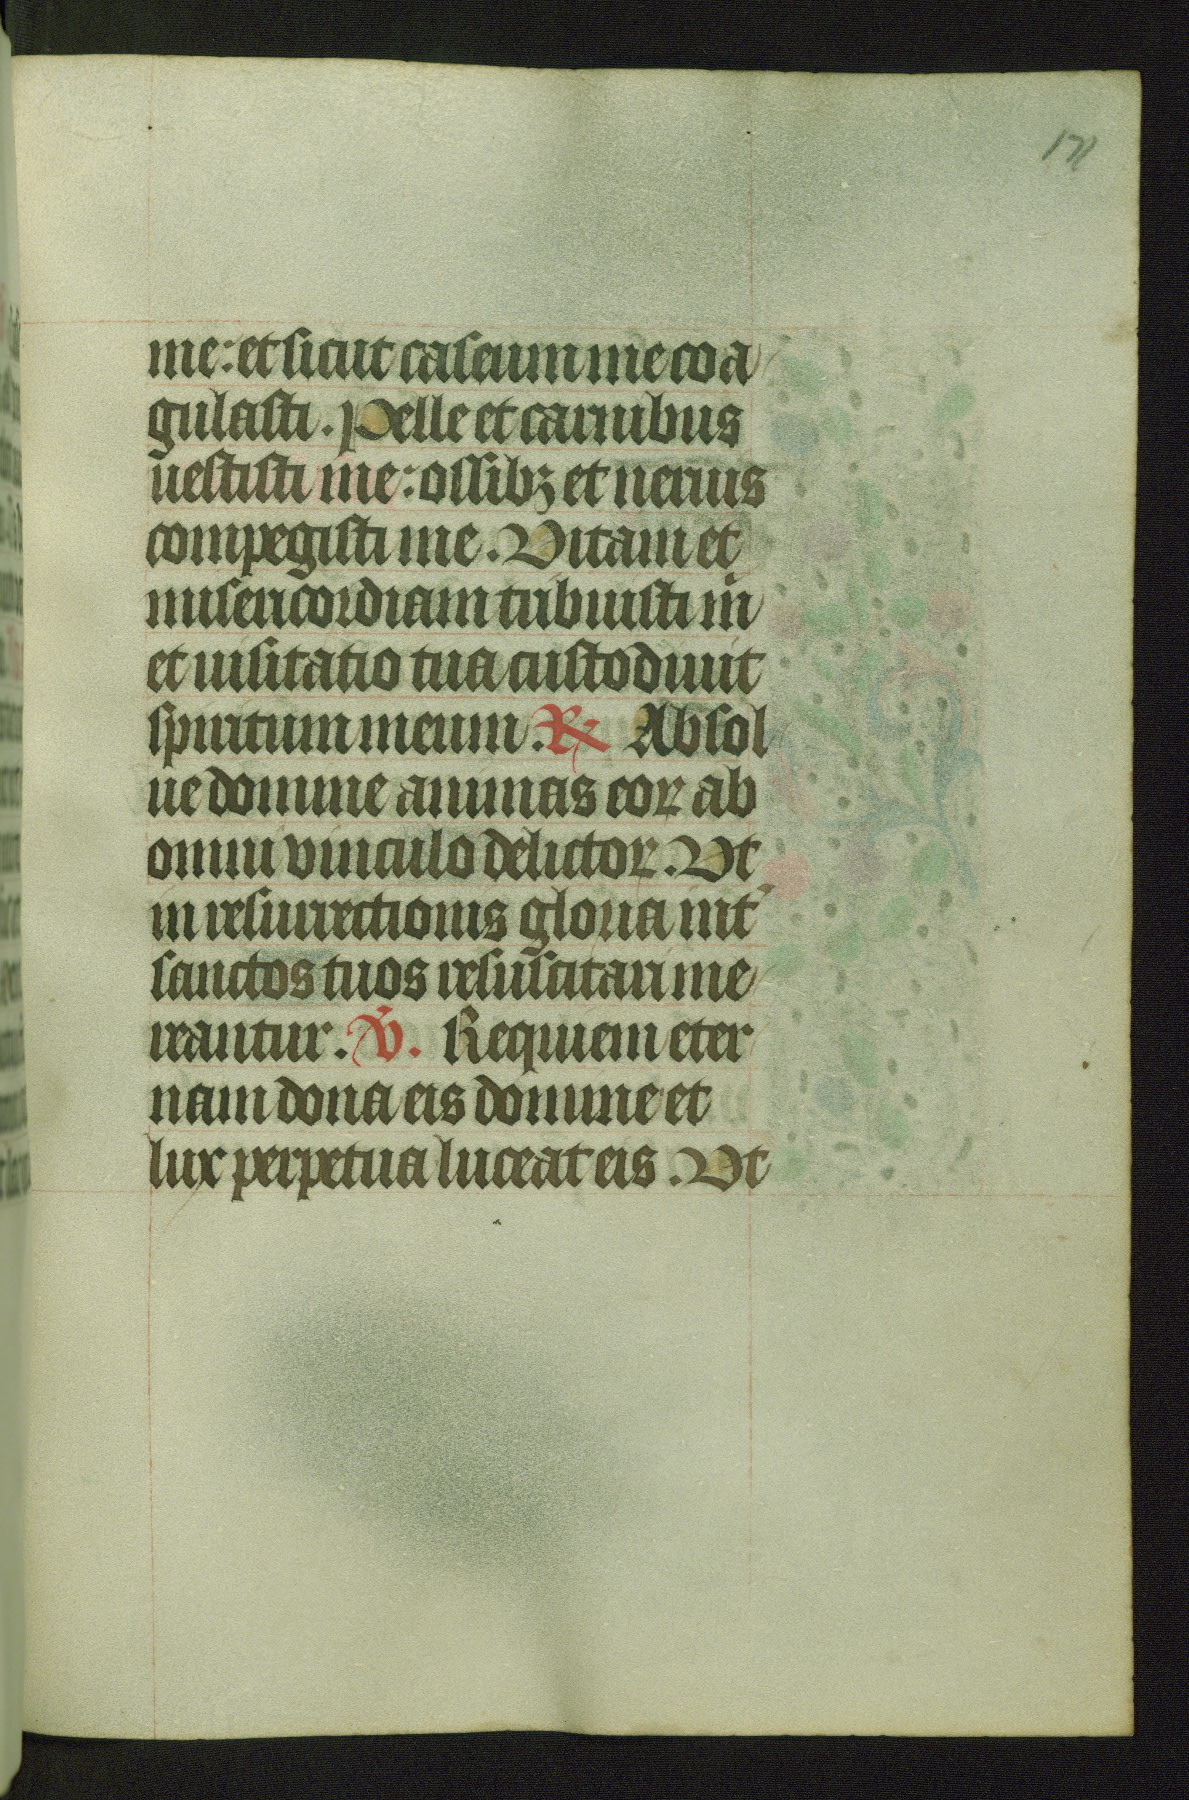 171
me: et sicut caseum me coa
gulasti. Pelle et carnibus
uestisti me: ossibꝫ et neruis
compegisti me. Vitam et
misericordiam tribuisti m̄
et uisitatio tua custodiuit
spiritum meum. ℟ Absol
ue domine animas eoꝝ ab
omni vinculo delictoꝝ. Vt
in resurrectionis gloria int̛
sanctos tuos resuscitari me
reantur. ℣. Requiem eter
nam dona eis domine et
lux perpetua luceat eis. Vt